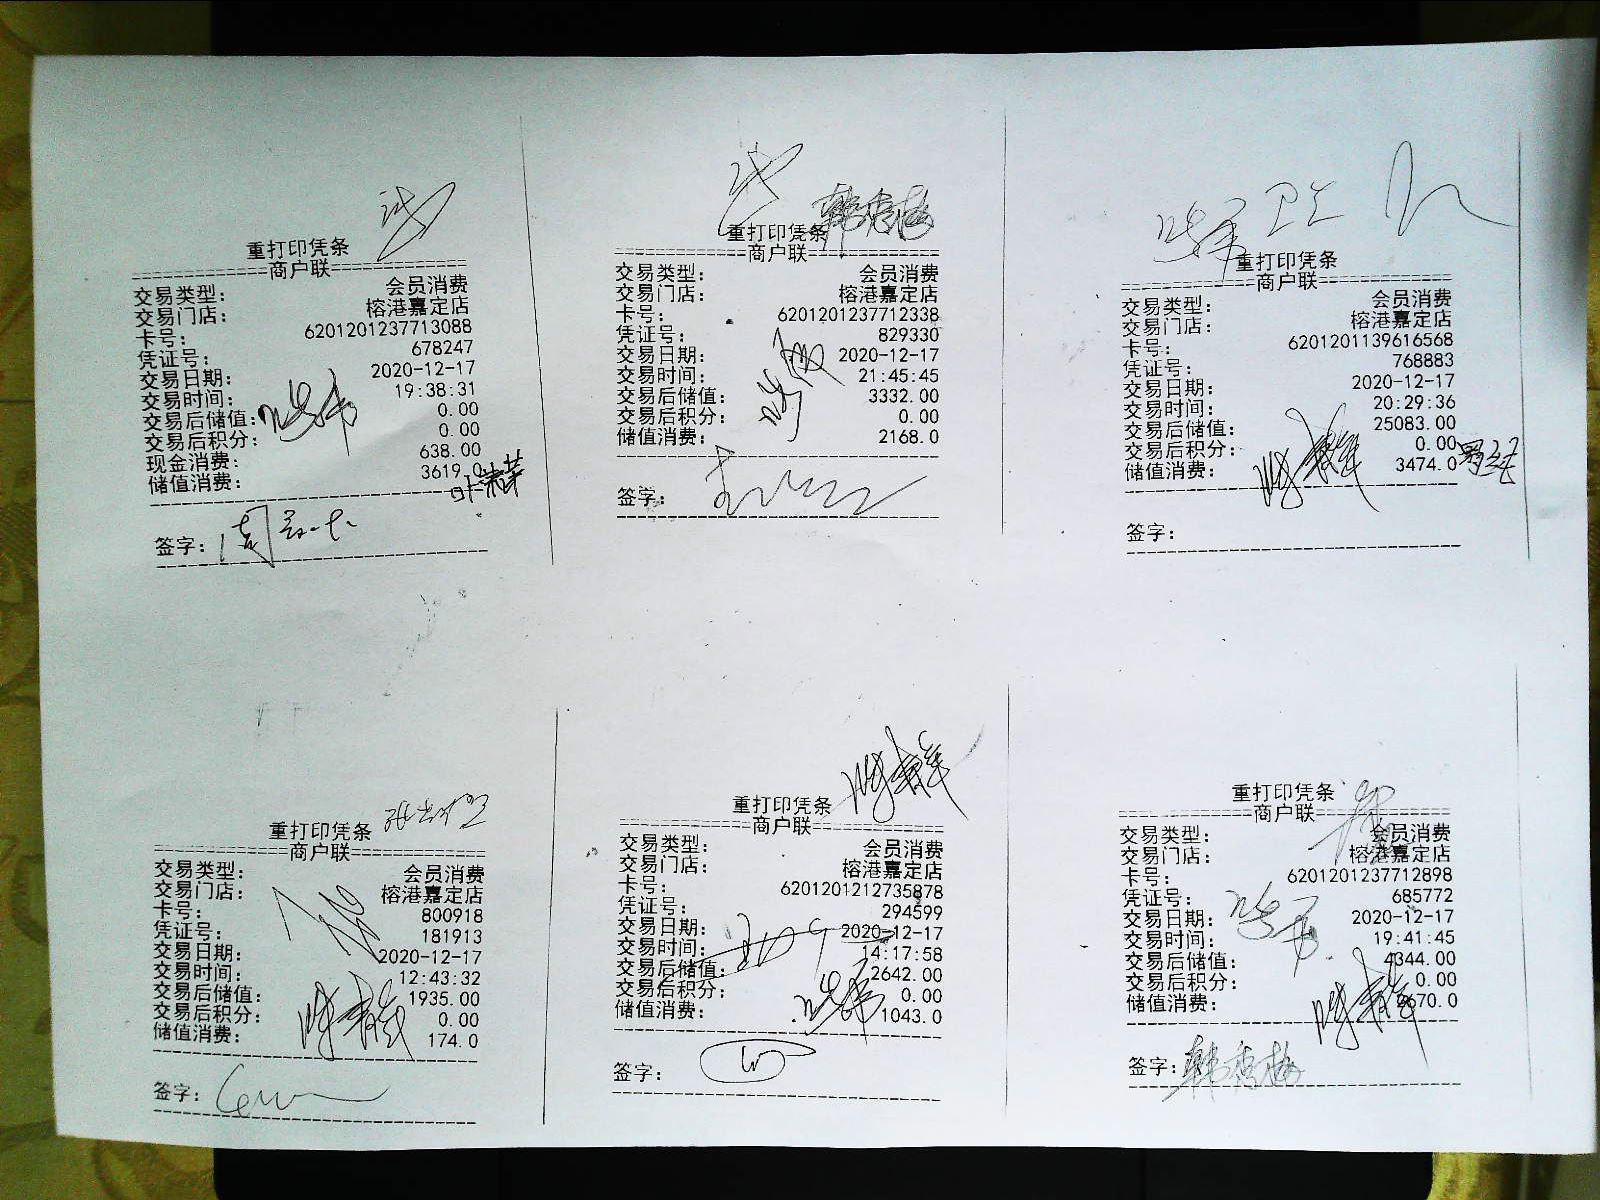 重打印凭条
商户联
交易类型： 会员消费
交易门店： 榕港嘉定店
卡号： 6201201237713088
凭证号： 678247
交易日期： 2020-12-17
交易时间： 19:38:31
交易后储值： 0.00
交易后积分： 0.00
现金消费： 638.00
储值消费： 3619.0
签字：
重打印凭条 韩秀梅
商户联
交易类型： 会员消费
交易门店： 榕港嘉定店
卡号： 6201201237712338
凭证号： 829330
交易日期： 2020-12-17
交易时间： 21:45:45
交易后储值： 3332.00
交易后积分： 0.00
储值消费： 2168.0
签字：
重打印凭条
商户联
交易类型： 会员消费
交易门店： 榕港嘉定店
卡号： 6201201139616568
凭证号： 768883
交易日期： 2020-12-17
交易时间： 20:29:36
交易后储值： 25083.00
交易后积分： 0.00
储值消费： 3474.0
签字：
重打印凭条
商户联
交易类型： 会员消费
交易门店： 榕港嘉定店
卡号： 800918
凭证号： 181913
交易日期： 2020-12-17
交易时间： 12:43:32
交易后储值： 1935.00
交易后积分： 0.00
储值消费： 174.0
签字：
重打印凭条
商户联
交易类型： 会员消费
交易门店： 榕港嘉定店
卡号： 6201201212735878
凭证号： 294599
交易日期： 2020-12-17
交易时间： 14:17:58
交易后储值： 2642.00
交易后积分： 0.00
储值消费： 1043.0
签字：
重打印凭条
商户联
交易类型： 会员消费
交易门店： 榕港嘉定店
卡号： 6201201237712898
凭证号： 685772
交易日期： 2020-12-17
交易时间： 19:41:45
交易后储值： 4344.00
交易后积分： 0.00
储值消费：
签字： 韩秀梅